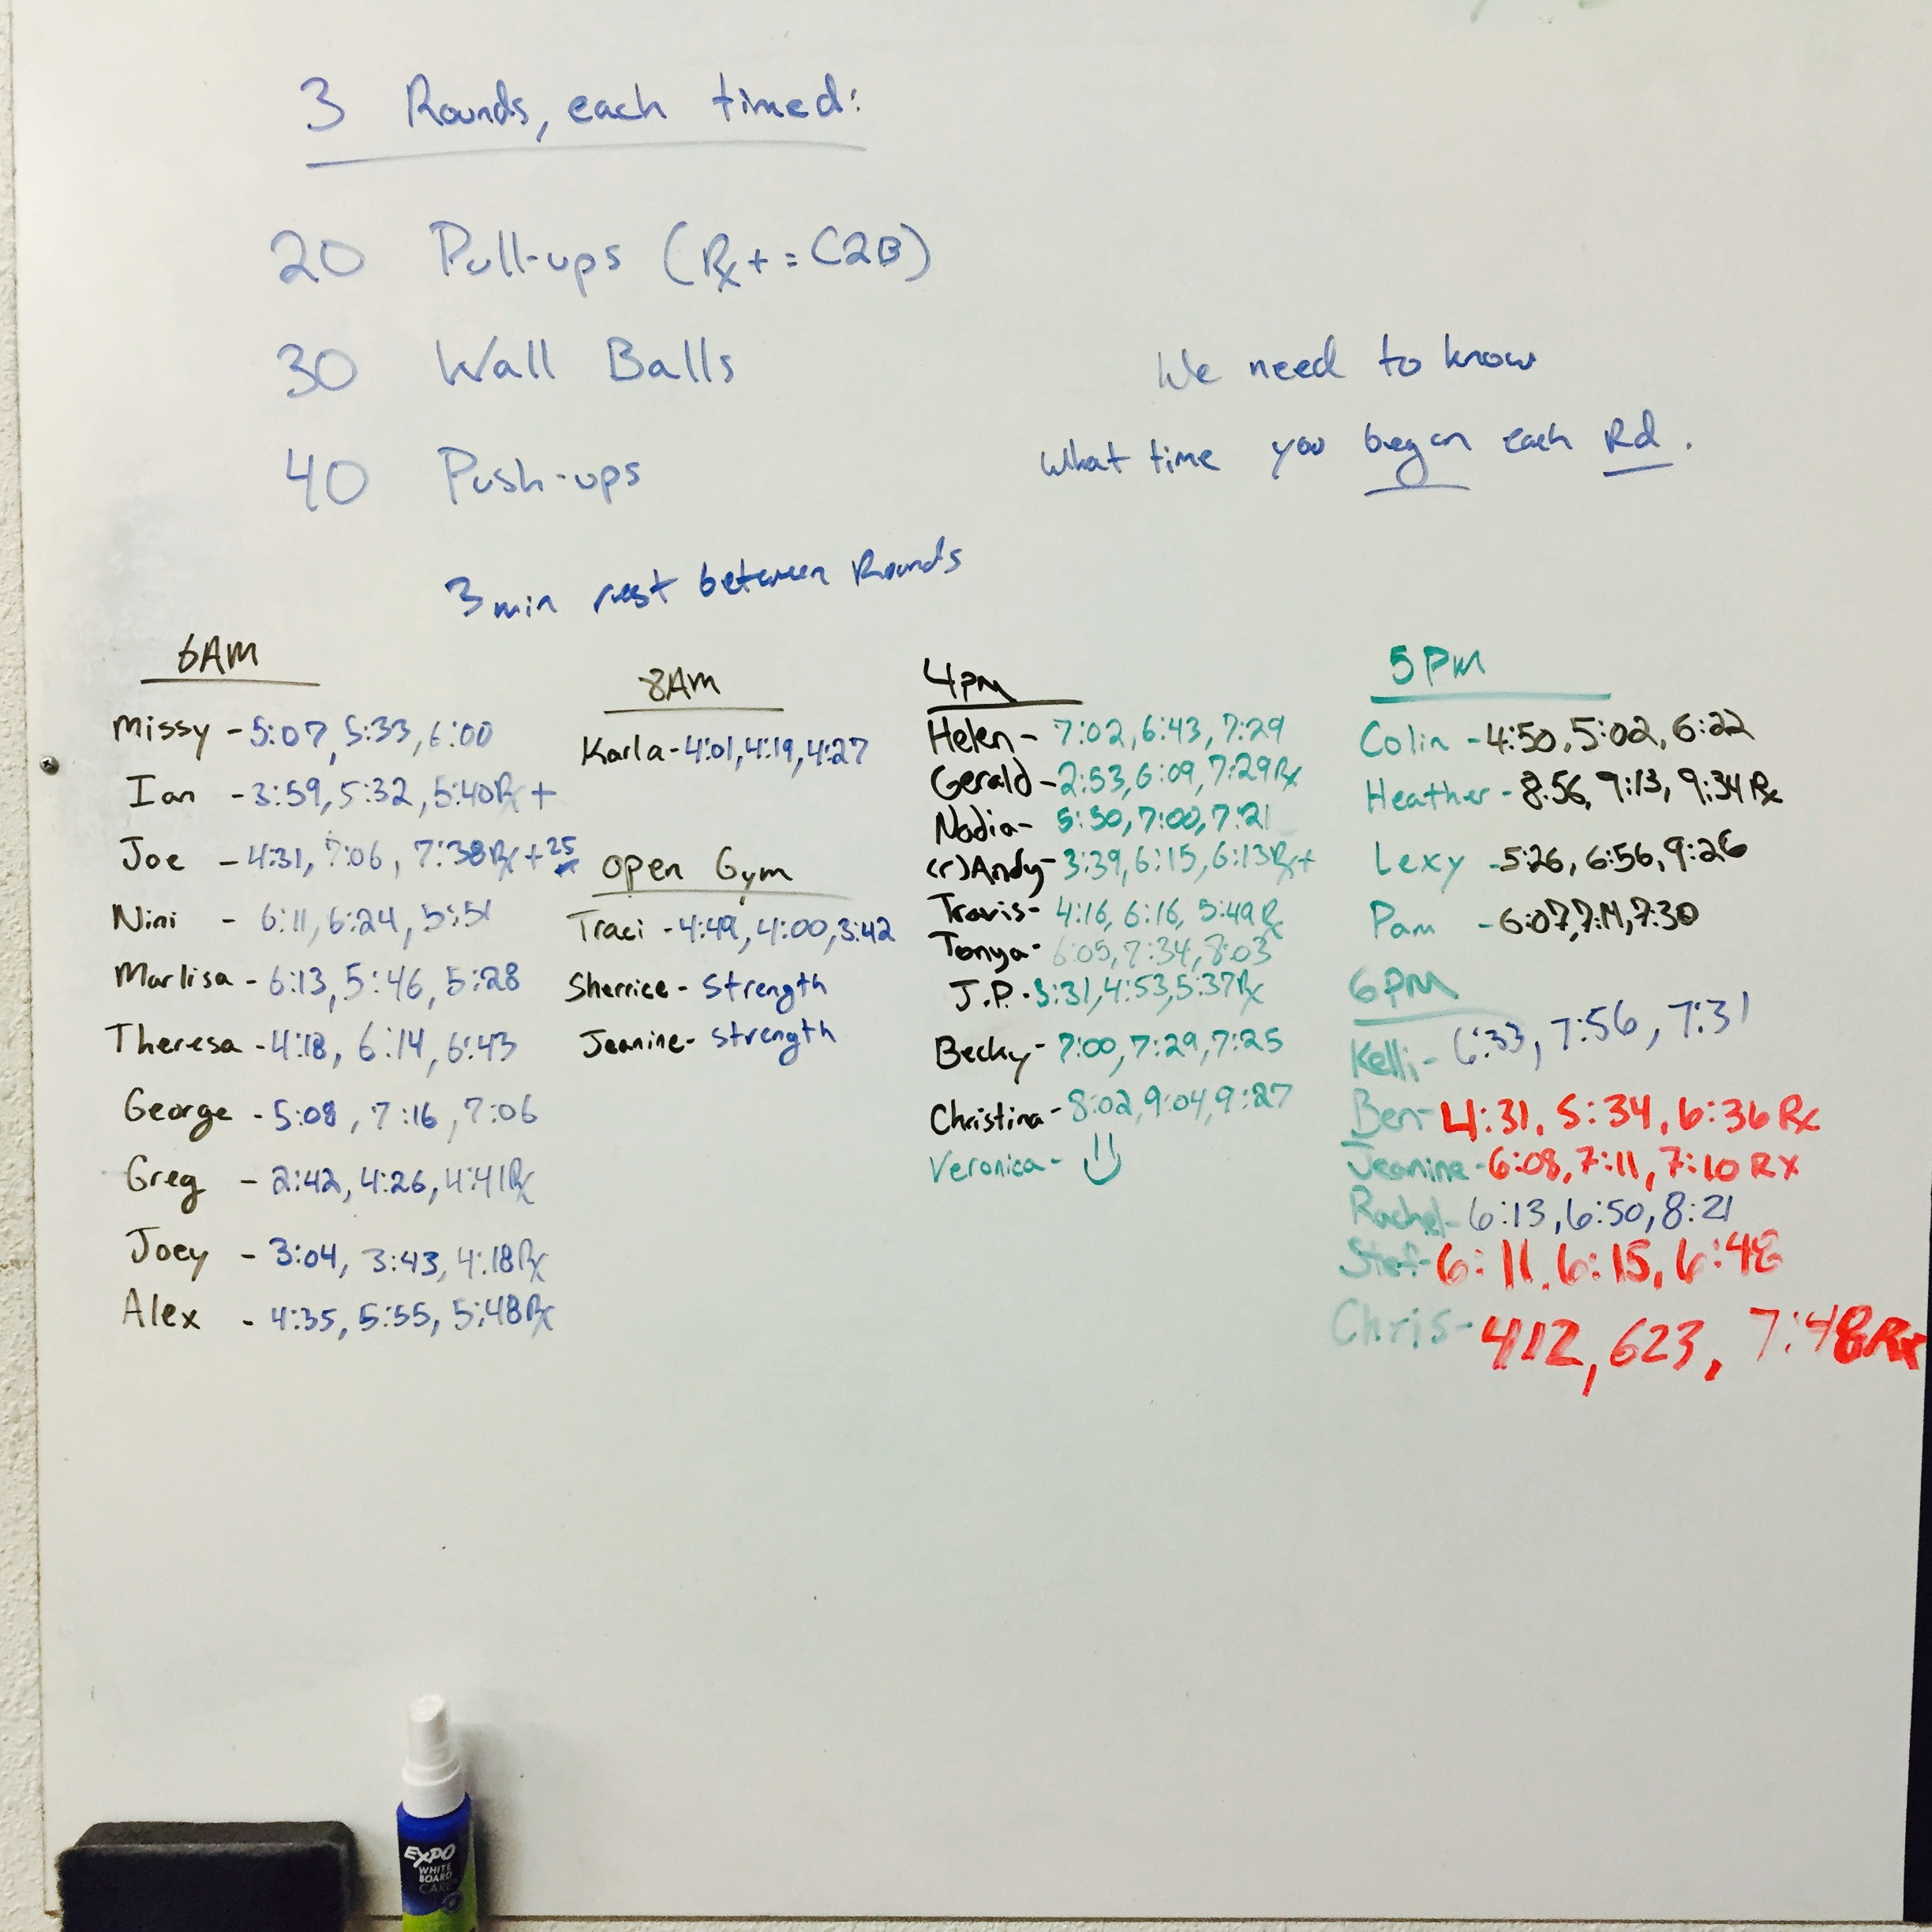 3 Rounds, each timed:
20 Pull-ups (Rx+ = C2B)
30 Wall Balls
40 Push-ups
We need to know
what time you began each Rd.
3 min rest between Rounds
6AM
Missy - 5:07, 5:33, 6:00
Ian - 3:59, 5:32, 5:40 Rx+
Joe - 4:31, 7:06, 7:38 Rx+ 25#
Nini - 6:11, 6:24, 5:51
Marlisa - 6:13, 5:46, 5:28
Theresa - 4:18, 6:14, 6:43
George - 5:08, 7:16, 7:06
Greg - 2:42, 4:26, 4:41 Rx
Joey - 3:04, 3:43, 4:18 Rx
Alex - 4:35, 5:55, 5:48 Rx
8AM
Karla - 4:01, 4:19, 4:27
Open Gym
Traci - 4:49, 4:00, 3:42
Sherrice - Strength
Jeanine - strength
4PM
Helen - 7:02, 6:43, 7:29
Gerald - 2:53, 6:09, 7:29 Rx
Nadia - 5:50, 7:00, 7:21
(r)Andy - 3:39, 6:15, 6:13 Rx+
Travis - 4:16, 6:16, 5:49 Rx
Tonya - 6:05, 7:34, 8:03
J.P. - 3:31, 4:53, 5:37 Rx
Becky - 7:00, 7:29, 7:25
Christina - 8:02, 9:04, 9:27
Veronica -
5PM
Colin - 4:50, 5:02, 6:22
Heather - 8:56, 9:13, 9:34 Rx
Lexy - 5:26, 6:56, 9:26
Pam - 6:07, 7:11, 7:30
6PM
Kelli - 6:33, 7:56, 7:31
Ben - 4:31, 5:34, 6:36 Rx
Jeanine - 6:08, 7:11, 7:10 RX
Rachel - 6:13, 6:50, 8:21
Stef - 6:11, 6:15, 6:48
Chris - 412, 623, 7:48 Rx
EXPO
WHITE
BOARD
CARE